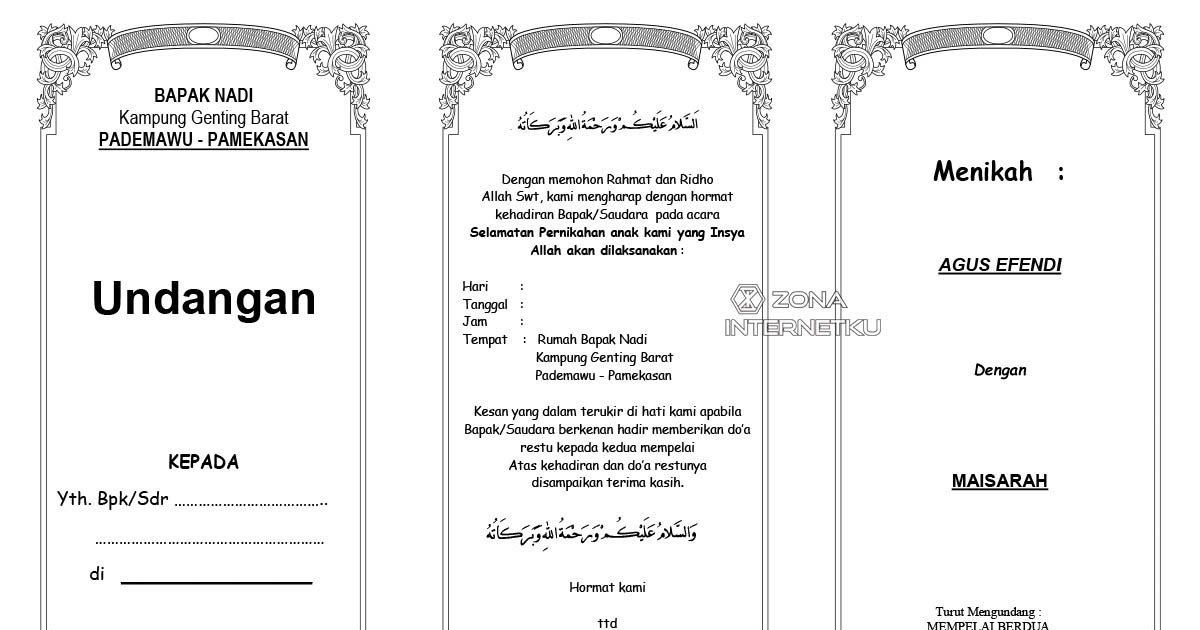 BAPAK NADI
Kampung Genting Barat
PADEMAWU - PAMEKASAN
Undangan
KEPADA
Yth. Bpk/Sdr ………………………………..
…………………………………………………
di ____________________
اَلسَّلَامُ عَلَيْكُمْ وَرَحْمَةُ اللهِ وَبَرَكَاتُهُ
Dengan memohon Rahmat dan Ridho
Allah Swt, kami mengharap dengan hormat
kehadiran Bapak/Saudara pada acara
Selamatan Pernikahan anak kami yang Insya
Allah akan dilaksanakan :
Hari :
Tanggal :
Jam :
Tempat : Rumah Bapak Nadi
Kampung Genting Barat
Pademawu - Pamekasan
Kesan yang dalam terukir di hati kami apabila
Bapak/Saudara berkenan hadir memberikan do’a
restu kepada kedua mempelai
Atas kehadiran dan do’a restunya
disampaikan terima kasih.
وَالسَّلَامُ عَلَيْكُمْ وَرَحْمَةُ اللهِ وَبَرَكَاتُهُ
Hormat kami
ttd
Menikah :
AGUS EFENDI
Dengan
MAISARAH
Turut Mengundang :
MEMPELAI BERDUA
ZONA
INTERNETKU